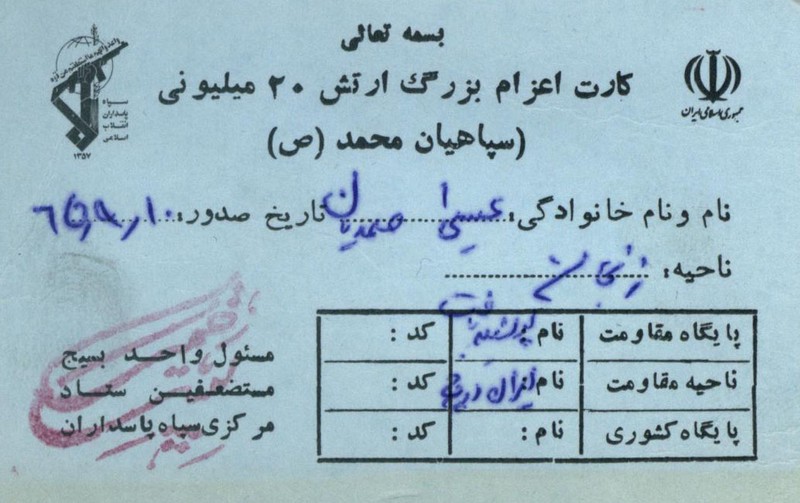 بسمه تعالی
کارت اعزام بزرگ ارتش ۲۰ میلیونی
(سپاهیان محمد (ص)
جمهوری اسلامی ایران
سپاه
پاسداران
انقلاب
اسلامی
۱۳۵۷
نام و نام خانوادگی: عیسی صمدیان تاریخ صدور: ۶۵,۹,۱۰
ناحیه: زنجان
پایگاه مقاومت نام: کد:
ناحیه مقاومت نام: کد:
پایگاه کشوری نام: کد:
مسئول واحد بسیج
مستضعفین ستاد
مرکزی سپاه پاسداران